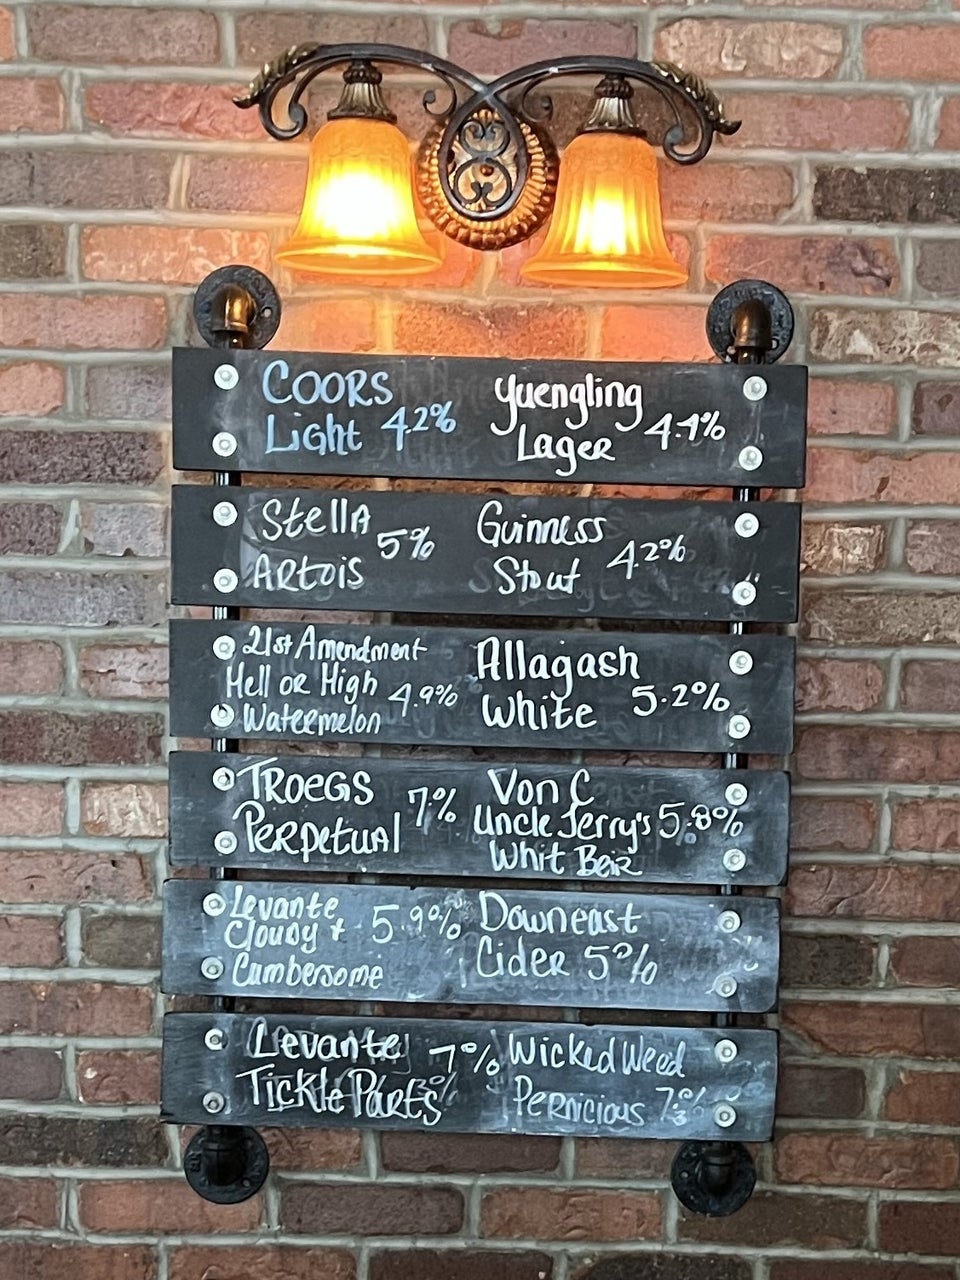 COORS
Light 4.2%
Yuengling
Lager 4.4%
Stella
Artois 5%
Guinness
Stout 4.2%
21st Amendment
Hell or High 4.9%
Watermelon
Allagash
White 5.2%
TROEGS
Perpetual 7%
Von C
Uncle Jerry's 5.8%
Whit Beir
Levante
Cloudy + 5.9%
Cumbersome
Downeast
Cider 5%
Levante 7%
Tickle Parts
Wicked Weed
Pernicious